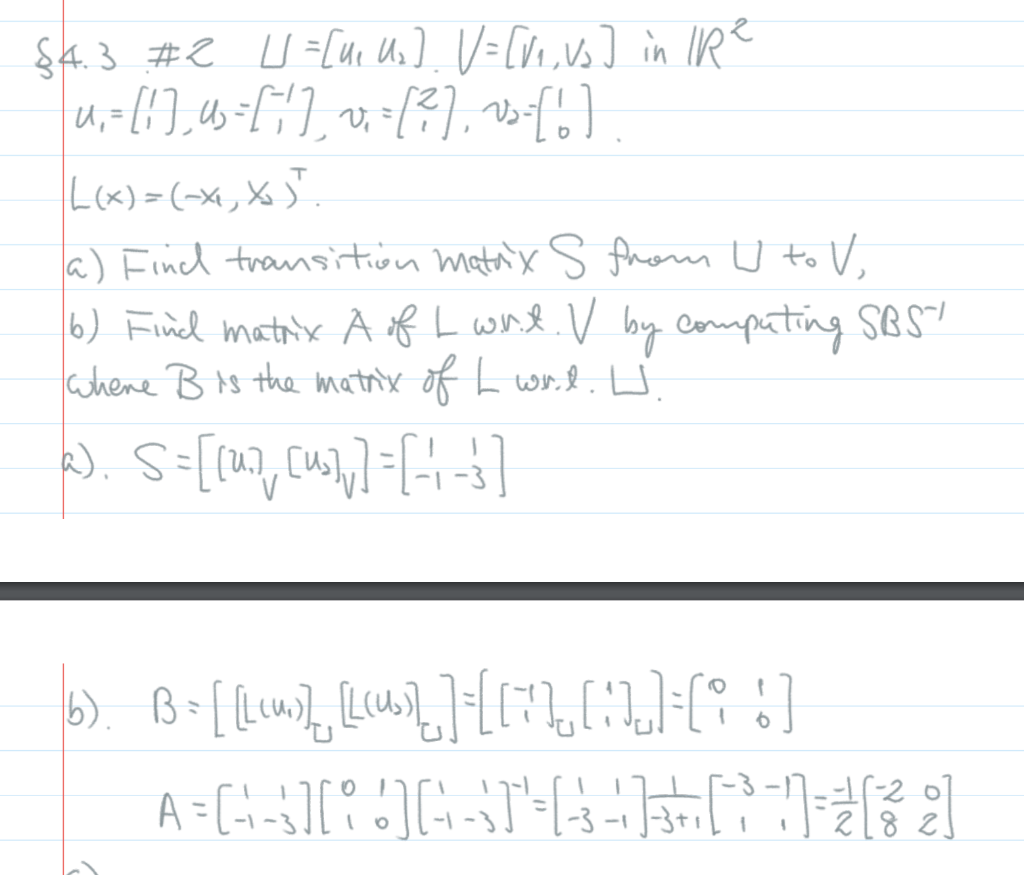 §4.3 #2 U=[u₁ u₂]. V=[v₁,v₂] in ℝ²
u₁=[1; 1], u₂=[-1; 1], v₁=[2; 1], v₂=[1; 0].
L(x)=(-x₁, x₂)ᵀ.
a) Find transition matrix S from U to V,
b) Find matrix A of L w.r.t. V by computing SBS⁻¹
where B is the matrix of L w.r.t. U.
a). S=[[u₁]_V [u₂]_V]=[1 1; -1 -3]
b). B=[[L(u₁)]_U [L(u₂)]_U]=[[-1; 1]_U [1; 1]_U]=[0 1; 1 0]
A=[1 1; -1 -3][0 1; 1 0][1 1; -1 -3]⁻¹=[1 1; -3 -1] 1/(-3+1) [-3 -1; 1 1]=-1/2 [-2 0; 8 2]